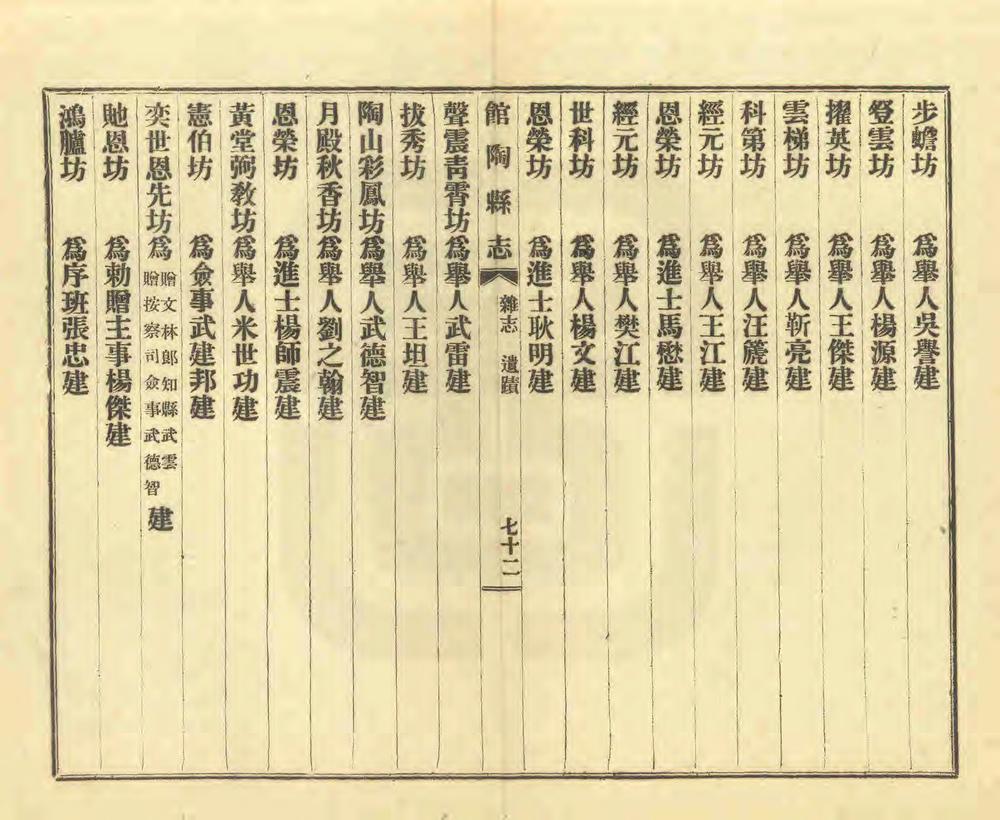 步蟾坊　爲舉人吳譽建
登雲坊　爲舉人楊源建
擢英坊　爲舉人王傑建
雲梯坊　爲舉人靳亮建
科第坊　爲舉人汪篪建
經元坊　爲舉人王江建
恩榮坊　爲進士馬懋建
經元坊　爲舉人樊江建
世科坊　爲舉人楊文建
恩榮坊　爲進士耿明建
館陶縣志　雜志　遺蹟　七十二
聲震靑霄坊爲舉人武雷建
拔秀坊　爲舉人王坦建
陶山彩鳳坊爲舉人武德智建
月殿秋香坊爲舉人劉之翰建
恩榮坊　爲進士楊師震建
黃堂弼敎坊爲舉人米世功建
憲伯坊　爲僉事武建邦建
奕世恩先坊爲贈文林郎知縣武雲贈按察司僉事武德智建
貤恩坊　爲勅贈主事楊傑建
鴻臚坊　爲序班張忠建